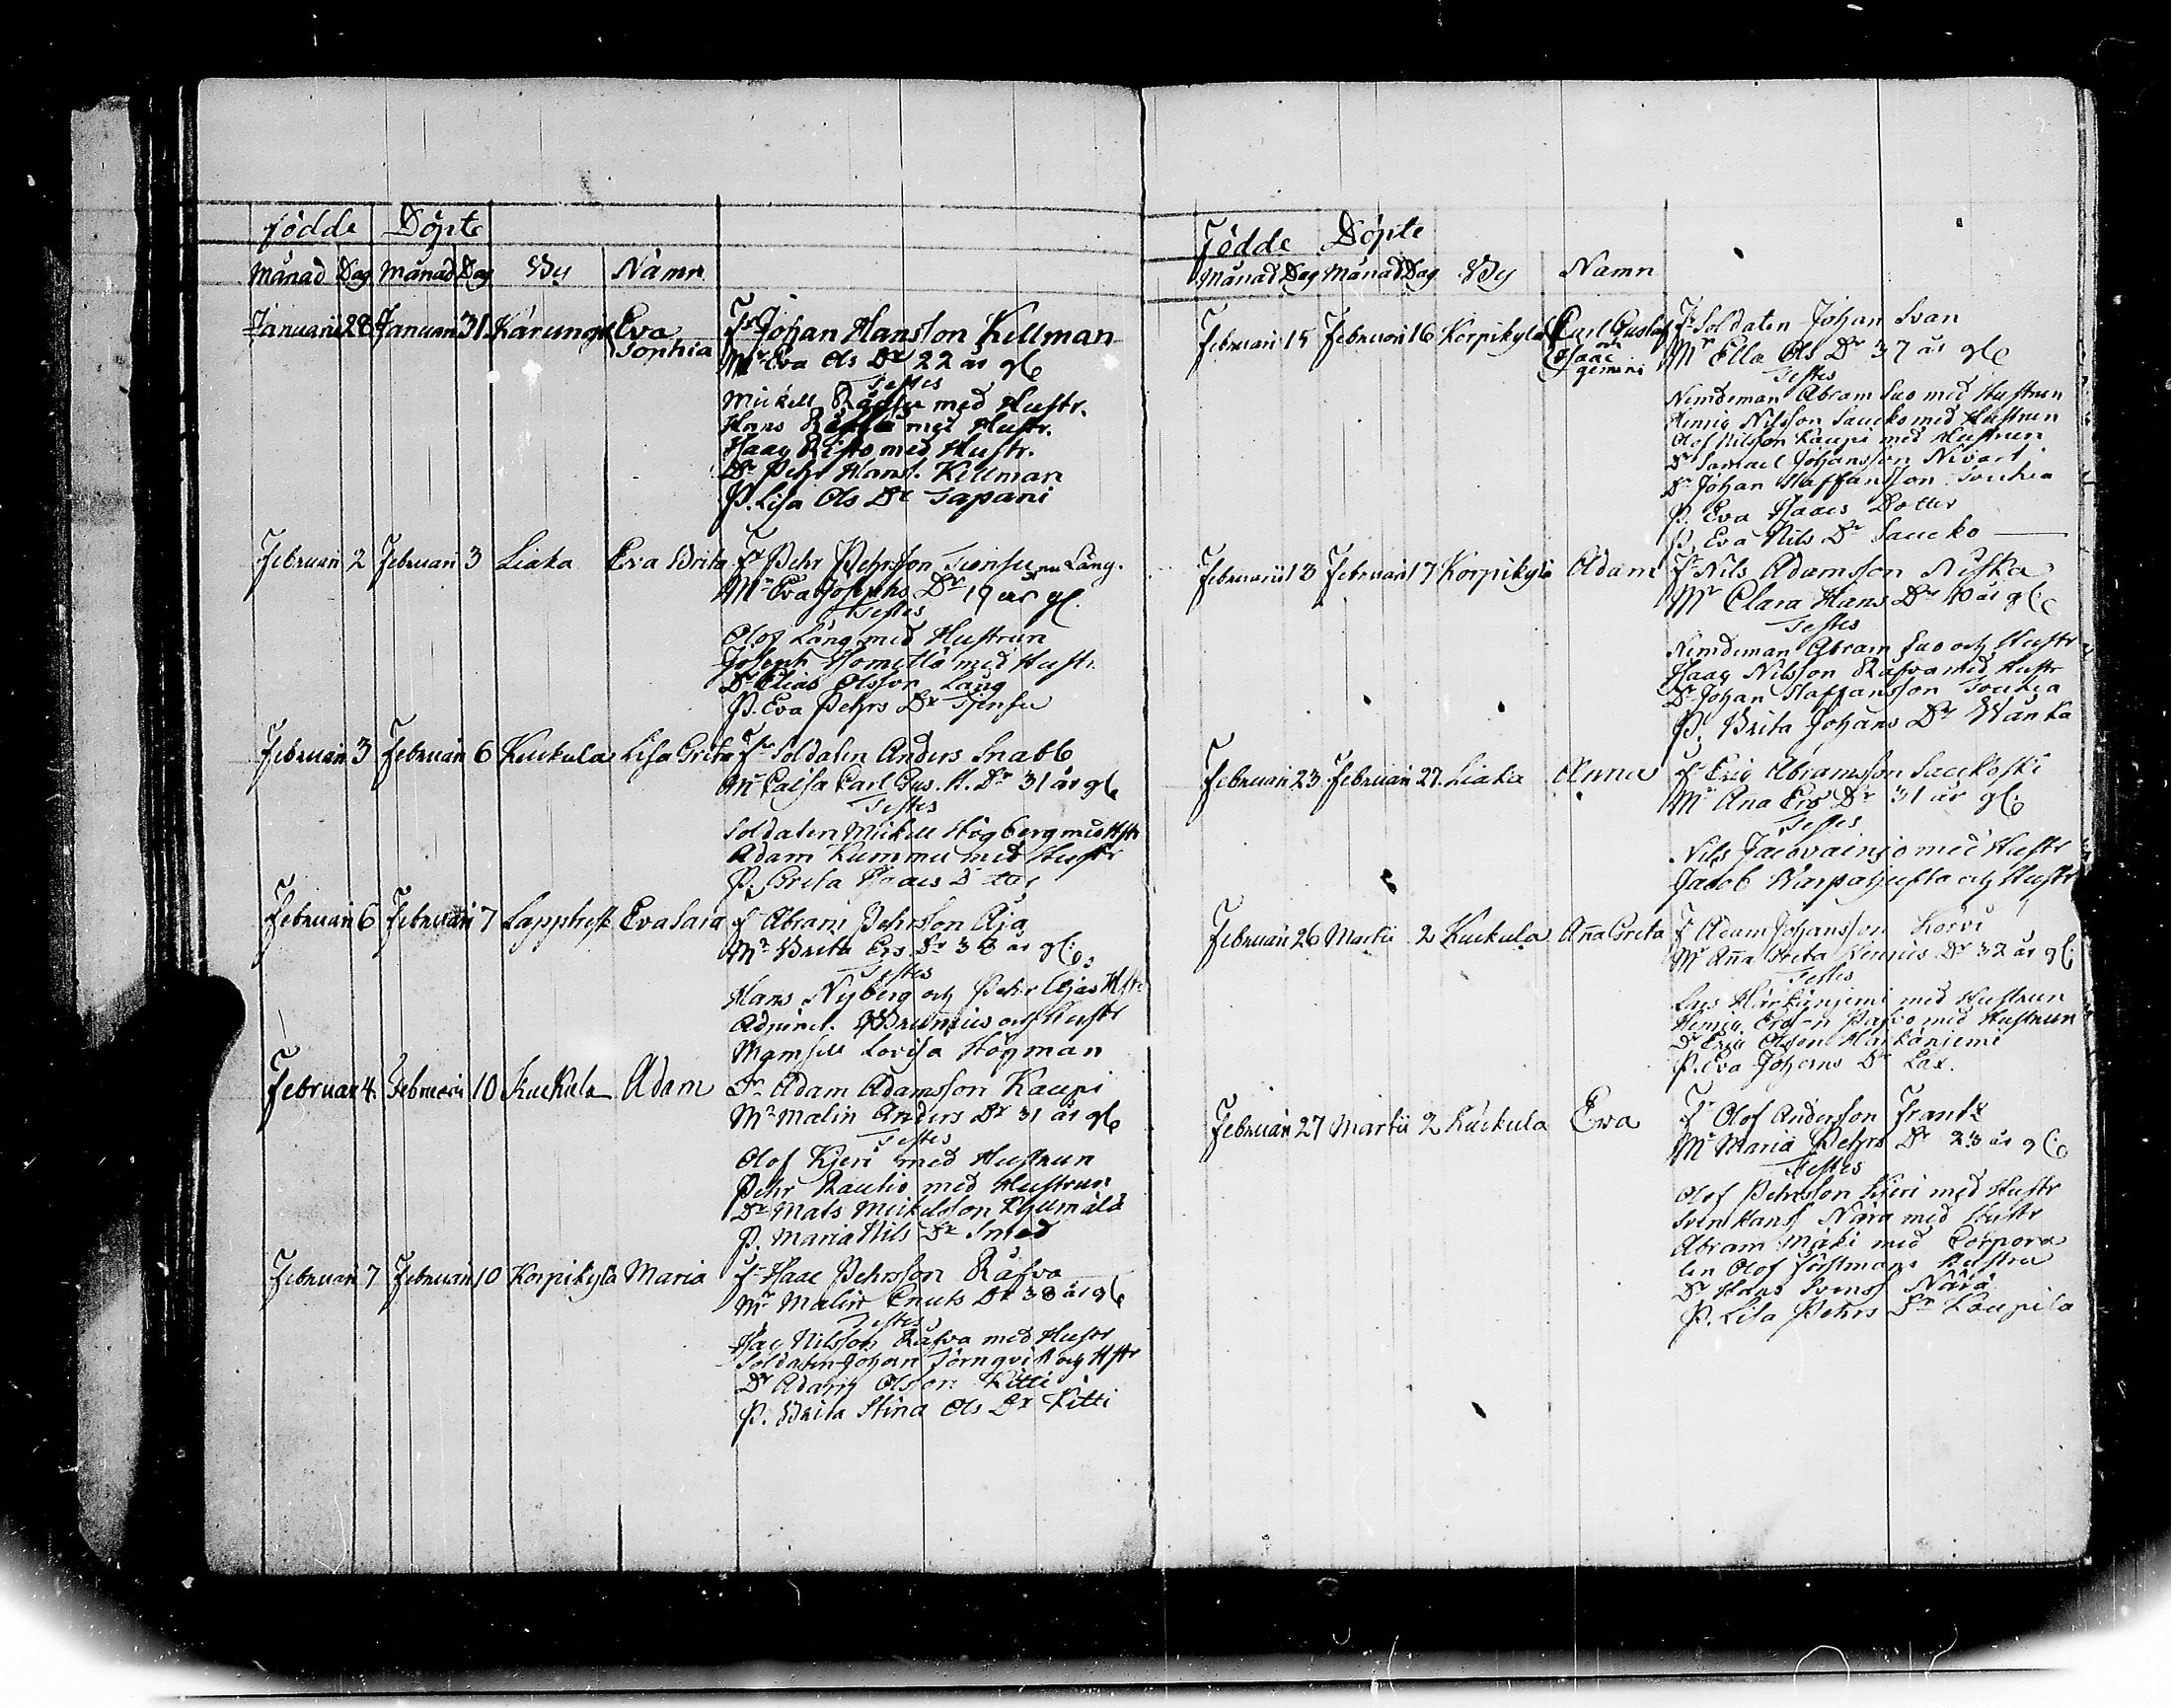 födde Döpte
Månad Dag Månad Dag By Namn
Januarii 28 Januari 31 Karungi Eva Sophia Fr Johan Hansson Kellman
Mr Eva Ols Dr 22 år gl
Testes
Mickell med Hustr.
Hans med Hustr.
Isaac Risto med Hustr.
Dr Pehr Hanss. Kellman
P. Lisa Ols Dr Tapani
Februari 2 Februari 3 Liaka Eva Brita Fr Pehr Pehrsson nu Lång.
Mr Eva Josephs Dr 19 år gl.
Testes
Olof Lång med Hustrun
Joseph med Hustr.
Dr Elias Olsson Lång
P. Eva Pehrs Dr
Februari 3 Februari 6 Kuckula Lisa Greta Fr Soldaten Anders Snabb
Mr Caisa Carl Gus. A. Dr 31 år gl
Testes
Soldaten Mickell Högberg med Hstr
Adam Kummu med Hustr
P. Greta Isaacs Dotter
Februari 6 Februari 7 Eva Sara Fr Abram Pehrsson Äja
Mr Brita Ers Dr 38 år gl:
Testes
Hans Nyberg och Pehr Äjas Hstr
och Hustr
Mamsell Lovisa Högman
Februari 4. Februari 10 Kuckula Adam Fr Adam Adamsson Kaupi
Mr Malin Anders Dr 31 år gl
Testes
Olof Kjeri med Hustrun
Pehr Rautio med Hustrun
Dr Mats Mickelsson Kyllmälä
P. Maria Nils Dr Smed
Februari 7 Februari 10 Korpikylä Maria Fr Isaac Pehrsson Räfva
Mr Malin Cnuts Dr 38 år gl
Testes
Isac Nilsson Räfva med Hustr
Soldaten Johan Törnqvist och Hstr
Dr Adam Olsson Kitti
P. Brita Stina Ols Dr Kitti
Födde Döpte
Månad Dag Månad Dag By Namn
Februari 15 Februari 16 Korpikylä Carl Gustaf och Isaac gemini Fr Soldaten Johan Svan
Mr Ella Ols Dr 37 år gl
Testes
Nemdeman Abram Suo med Hustrun
Henric Nilsson Saucko med Hustrun
Olof Nilsson Kaupi med Hustrun
Dr Samuel Johansson Nivari
Dr Johan Staffansson
P. Eva Isaacs Dotter
P. Eva Nils Dr Saucko
Februarii 13 Februari 17 Korpikylä Adam Fr Nils Adamsson Niska
Mr Clara Hans Dr 40 år gl:
Testes
Nemdeman Abram Suo och Hustr
Isaac Nilsson Räfva med Hustr
Dr Johan Staffansson
P. Brita Johans Dr Wänkä
Februari 23 Februari 27. Liaka Anna Fr Eric Abramsson Sauckoski
Mr Aña Ers Dr 31 år gl:
Testes
Nils med Hustr
Jacob och Hustr
Februari 26 Martii 2 Kuckula Aña Greta Fr Adam Johansson Korvi
Mr Aña Greta Henrics Dr 32 år gl:
Testes
Lars Härkäniemi med Hustrun
Henric Ers-n Pafvo med Hustrun
Dr Eric Olsson Härkäniemi
P. Eva Johans Dr Lax.
Februari 27 Martii 2 Kuckula Eva Fr Olof Andersson Frantz
Mr Maria Pehrs Dr 23 år gl:
Testes
Olof Pehrsson Kjeri med Hustr
Sven Hanss Närä med Hustr
Abram Mäki med Corpora
len Olof Hustru
Dr Hans Svenss Närä
P. Lisa Pehrs Dr Kaupila